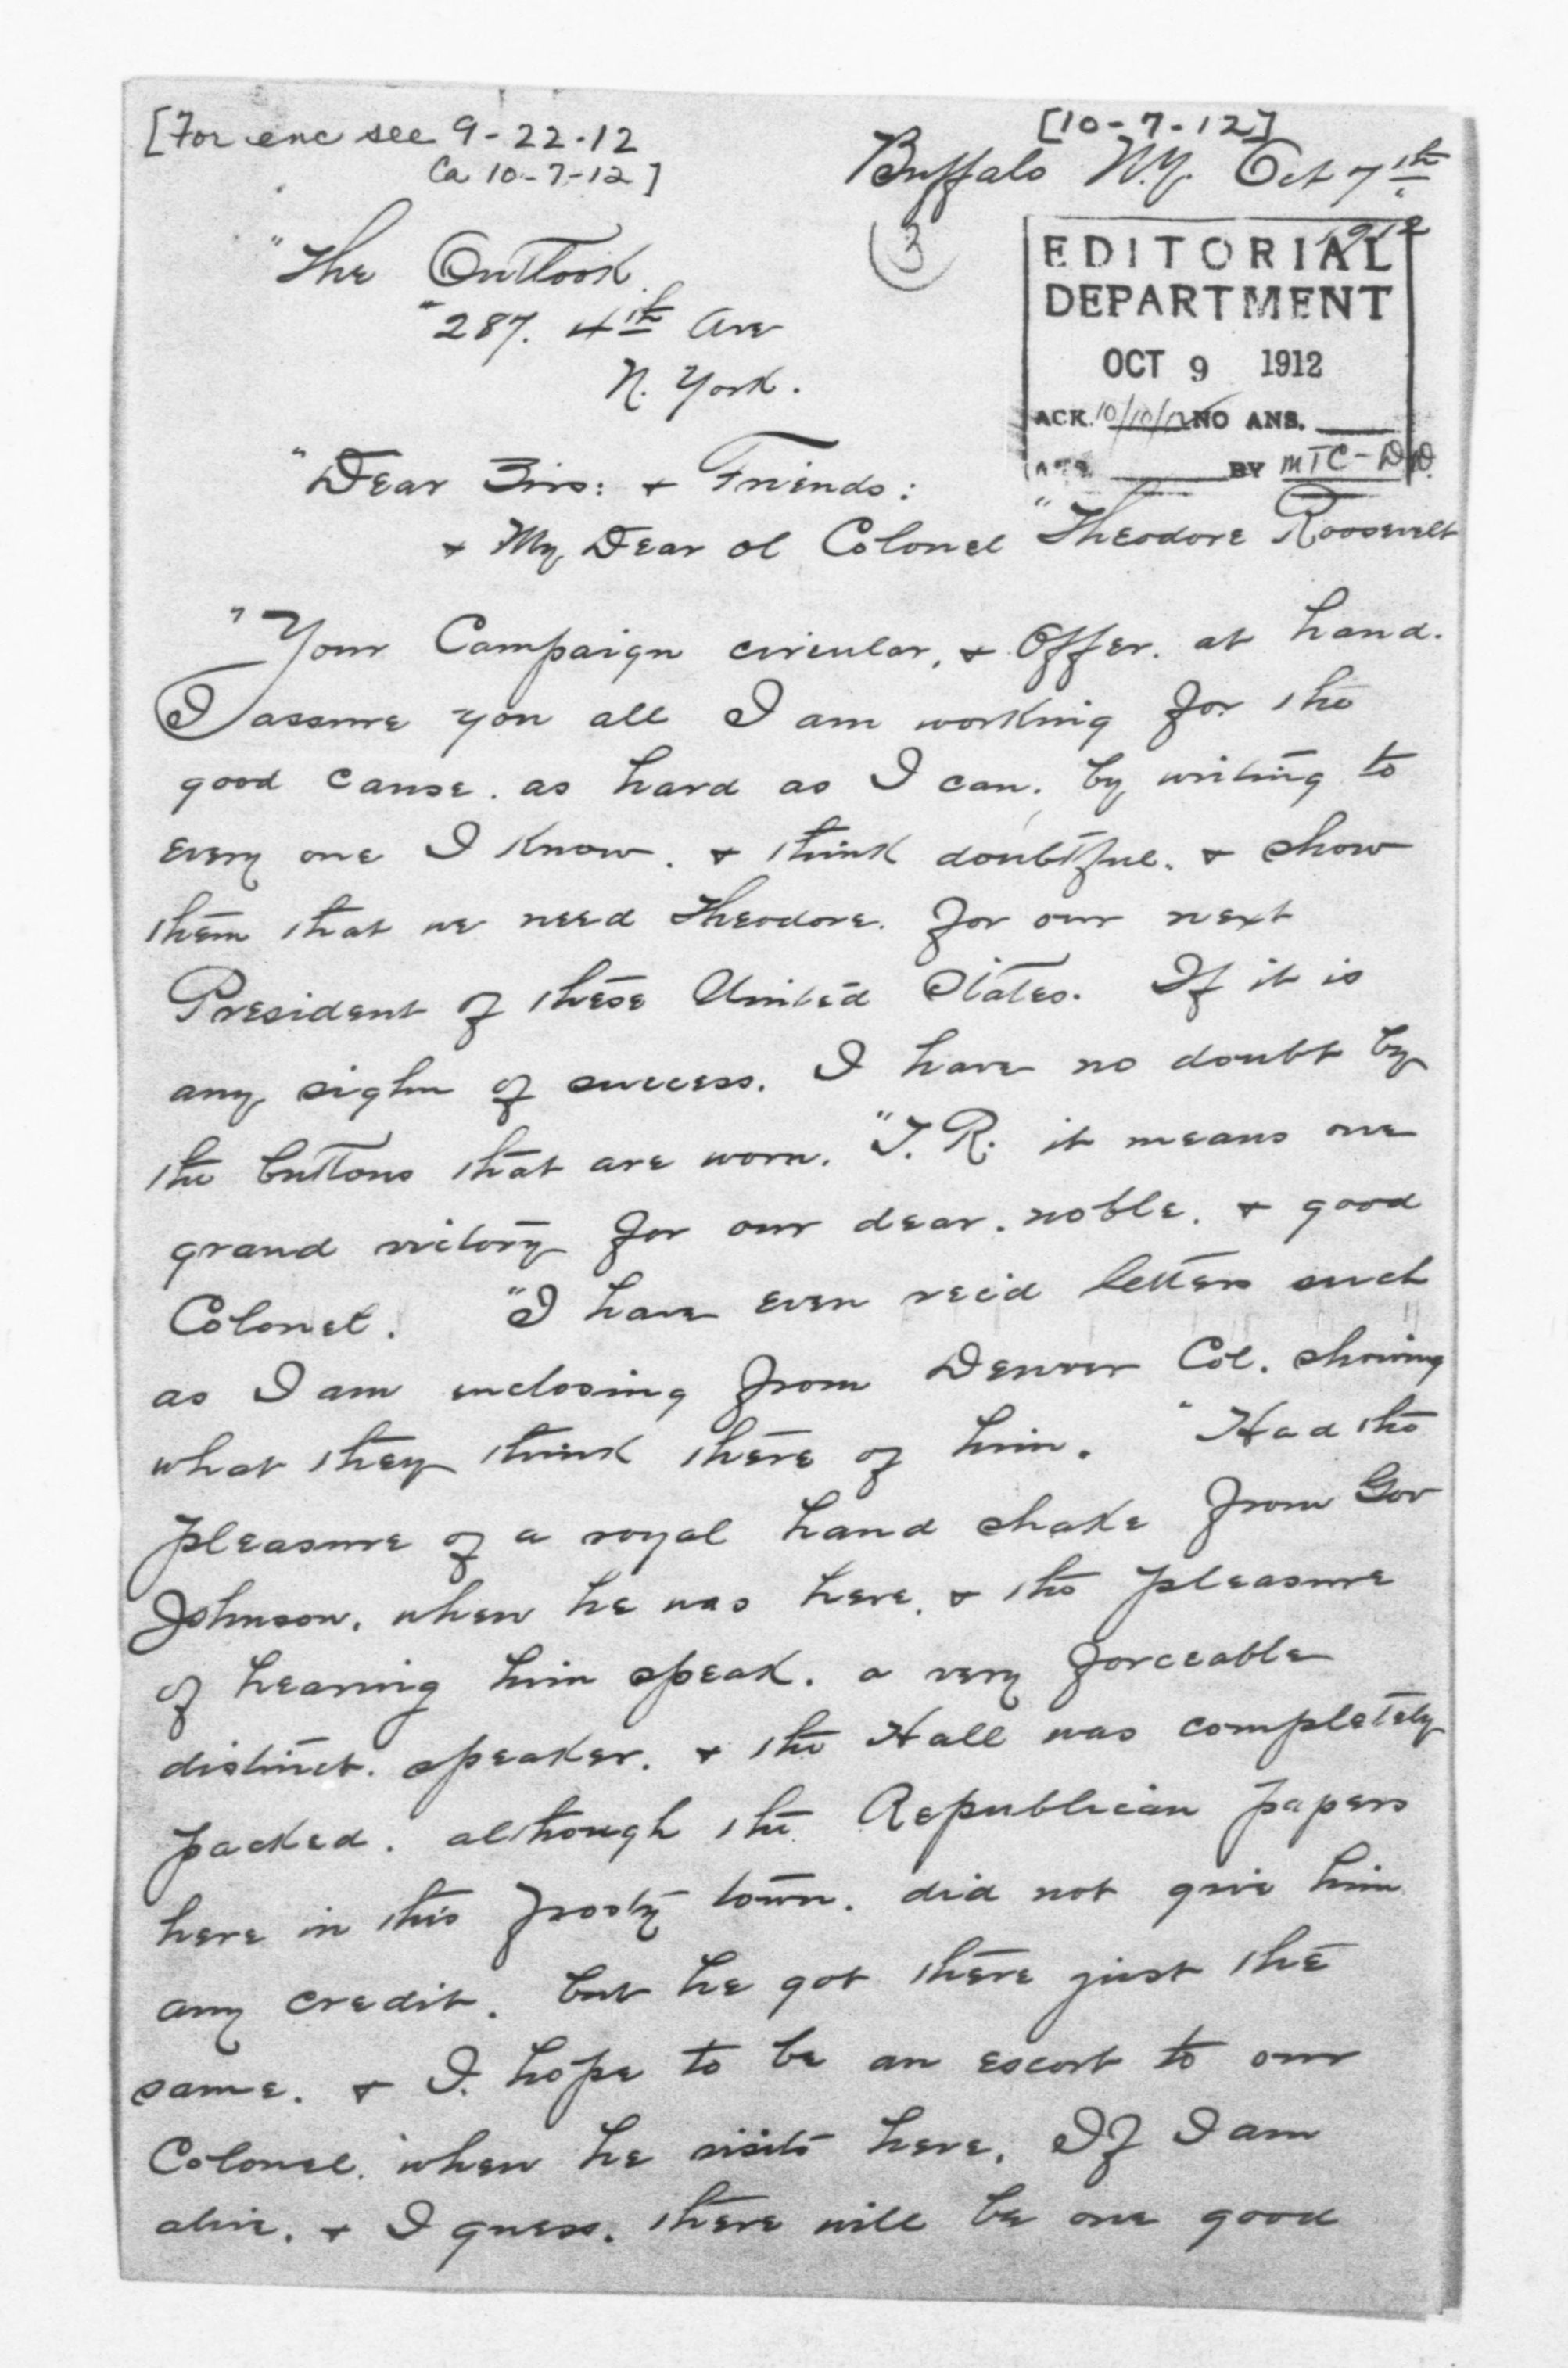 [For enc see 9-22-12
Ca 10-7-12]
[10-7-12]
Buffalo N.Y. Oct 7th
1912
(3)
"The Outlook.
"287. 4th Ave
N. York.
EDITORIAL
DEPARTMENT
OCT 9 1912
ACK. 10/10/12 NO ANS.
BY MTC-DD.
"Dear Sirs: + Friends:
+ My Dear ol Colonel "Theodore Roosevelt
"Your Campaign circular, + Offer. at hand.
I assure you all I am working for the
good cause. as hard as I can. by writing to
every one I know. + think doubtful. + show
them that we need Theodore. for our next
President of these United States. If it is
any sighn of success. I have no doubt by
the buttons that are worn. "T.R. it means one
grand victory for our dear. noble. + good
Colonel. "I have even rec'd letters such
as I am enclosing from Denver Col. showing
what they think there of him. "Had the
pleasure of a royal hand shake from Gov
Johnson. when he was here. + the pleasure
of hearing him speak. a very forceable
distinct. speaker. + the Hall was completely
packed. although the Republican papers
here in this frosty town. did not give him
any credit. but he got there just the
same. + I. hope to be an escort to our
Colonel. when he visits here. If I am
alive. + I guess. there will be one good